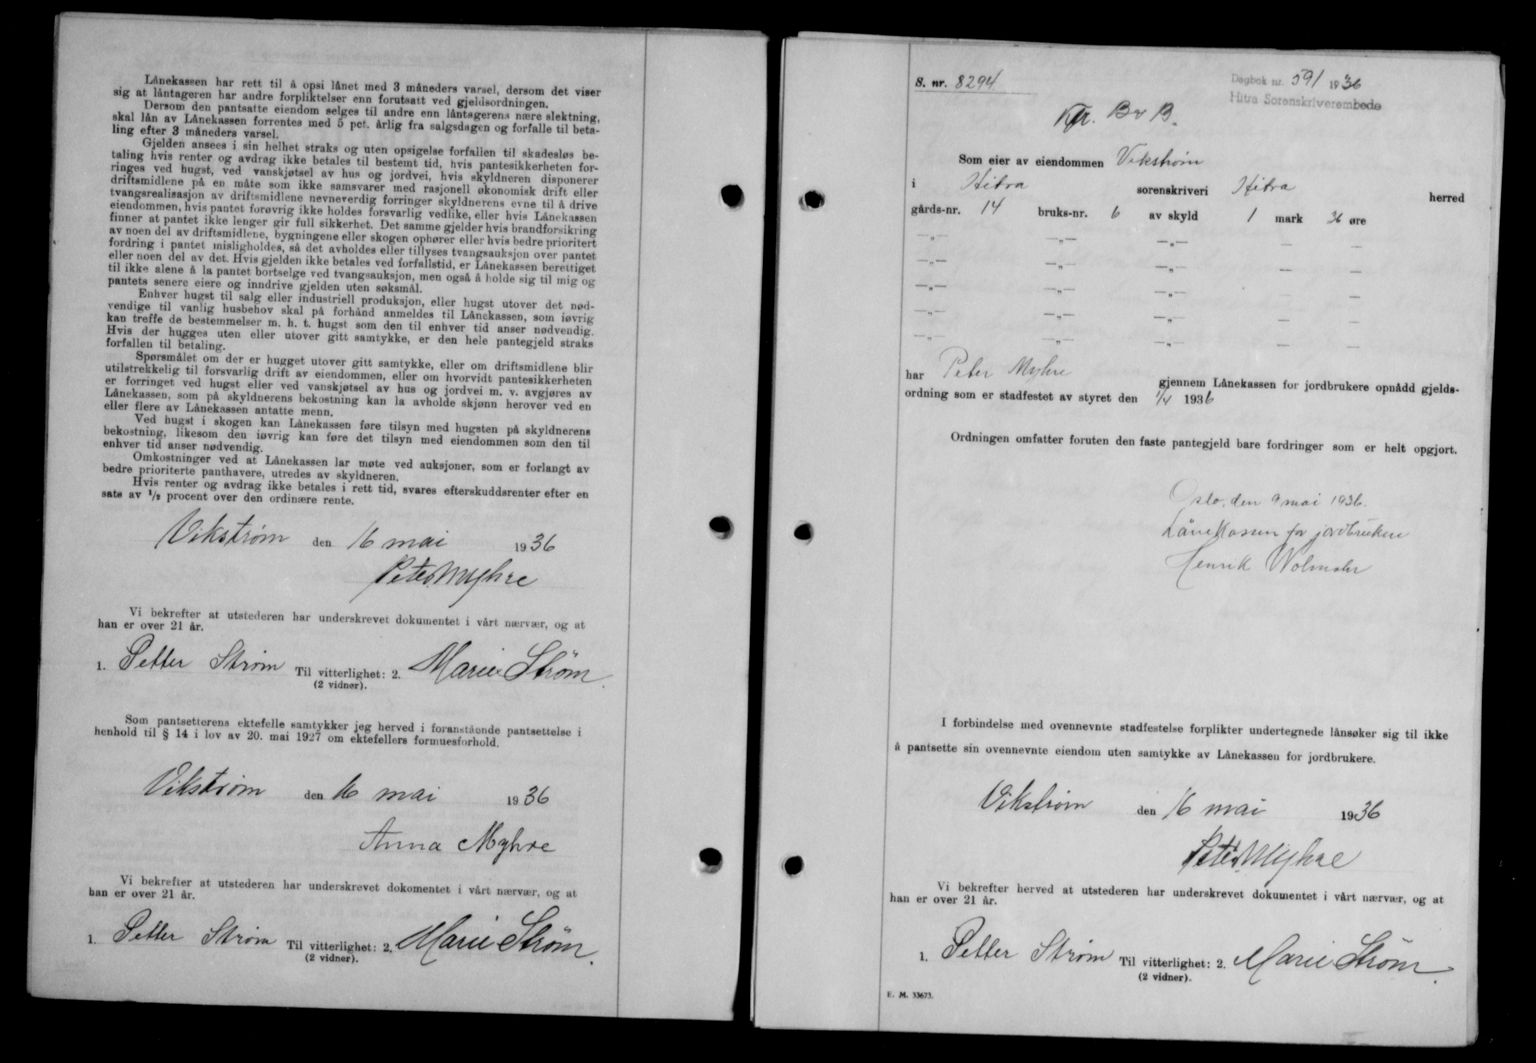 Lånekassen har rett til å opsi lånet med 3 måneders varsel, dersom det viser
sig at låntageren har andre forpliktelser enn forutsatt ved gjeldsordningen.
Dersom den pantsatte eiendom selges til andre enn låntagerens nære slektning,
skal lån av Lånekassen forrentes med 5 pct. årlig fra salgsdagen og forfalle til beta-
ling efter 3 måneders varsel.
Gjelden ansees i sin helhet straks og uten opsigelse forfallen til skadesløs be-
taling hvis renter og avdrag ikke betales til bestemt tid, hvis pantesikkerheten for-
ringes ved hugst, ved vanskjøtsel av hus og jordvei, hvis skyldneren disponerer
driftsmidlene på en måte som ikke samsvarer med rasjonell økonomisk drift eller
tvangsrealisasjon av driftsmidlene nevneverdig forringer skyldnerens evne til å drive
eiendommen, hvis pantet forøvrig ikke holdes forsvarlig vedlike, eller hvis Lånekassen
finner at pantet ikke lenger gir full sikkerhet. Det samme gjelder hvis brandforsikring
av noen del av driftsmidlene, bygningene eller skogen ophører eller hvis bedre prioritert
fordring i pantet misligholdes, så det avholdes eller tillyses tvangsauksjon over pantet
eller noen del av det. Hvis gjelden ikke betales ved forfallstid, er Lånekassen berettiget
til ikke alene å la pantet bortselge ved tvangsauksjon, men også å holde sig til mig og
pantets senere eiere og inndrive gjelden uten søksmål.
Enhver hugst til salg eller industriell produksjon, eller hugst utover det nød-
vendige til vanlig husbehov skal på forhånd anmeldes til Lånekassen, som iøvrig
kan treffe de bestemmelser m. h. t. hugst som den til enhver tid anser nødvendig.
Hvis der hugges uten eller utover gitt samtykke, er den hele pantegjeld straks
forfallen til betaling.
Spørsmålet om der er hugget utover gitt samtykke, eller om driftsmidlene blir
utilstrekkelig til forsvarlig drift av eiendommen, eller om hvorvidt pantesikkerheten
er forringet ved hugst eller ved vanskjøtsel av hus og jordvei m. v. avgjøres av
Lånekassen, som på skyldnerens bekostning kan la avholde skjønn herover ved en
eller flere av Lånekassen antatte menn.
Ved hugst i skogen kan Lånekassen føre tilsyn med hugsten på skyldnerens
bekostning, likesom den iøvrig kan føre det tilsyn med eiendommen som den til
enhver tid anser nødvendig.
Omkostninger ved at Lånekassen lar møte ved auksjoner, som er forlangt av
bedre prioriterte panthavere, utredes av skyldneren.
Hvis renter og avdrag ikke betales i rett tid, svares efterskuddsrenter efter en
sats av 1/2 procent over den ordinære rente.
Vikstrøm den 16 mai 1936
Peter Myhre
Vi bekrefter at utstederen har underskrevet dokumentet i vårt nærvær, og at
han er over 21 år.
1. Petter Strøm Til vitterlighet: 2. Marie Strøm.
(2 vidner).
Som pantsetterens ektefelle samtykker jeg herved i foranstående pantsettelse i
henhold til § 14 i lov av 20. mai 1927 om ektefellers formuesforhold.
Vikstrøm den 16 mai 1936
Anna Myhre
Vi bekrefter at utstederen har underskrevet dokomentet i vårt nærvær, og at
han er over 21 år.
1. Petter Strøm Til vitterlighet: 2. Marie Strøm.
(2 vidner).
S. nr. 8294
Dagbok nr. 591 1936
Hitra Sorenskriverembede
Som eier av eiendommen Vikstrøm
i Hitra sorenskriveri Hitra herred
gårds-nr. 14 bruks-nr. 6 av skyld 1 mark 36 øre
—„— —„— —„— — —
—„— —„— —„— — —
—„— —„— —„— — —
—„— —„— —„— — —
—„— —„— —„— — —
har Peter Myhre gjennem Lånekassen for jordbrukere opnådd gjelds-
ordning som er stadfestet av styret den 1/4 1936
Ordningen omfatter foruten den faste pantegjeld bare fordringer som er helt opgjort.
Oslo, den 9 mai 1936.
Lånekassen for jordbrukere
Henrik
I forbindelse med ovennevnte stadfestelse forplikter undertegnede lånsøker sig til ikke
å pantsette sin ovennevnte eiendom uten samtykke av Lånekassen for jordbrukere.
Vikstrøm den 16 mai 1936
Peter Myhre
Vi bekrefter herved at utstederen har underskrevet dokumentet i vårt nærvær, og at
han er over 21 år.
1. Petter Strøm Til vitterlighet: 2. Marie Strøm.
(2 vidner).
E. M. 33673.